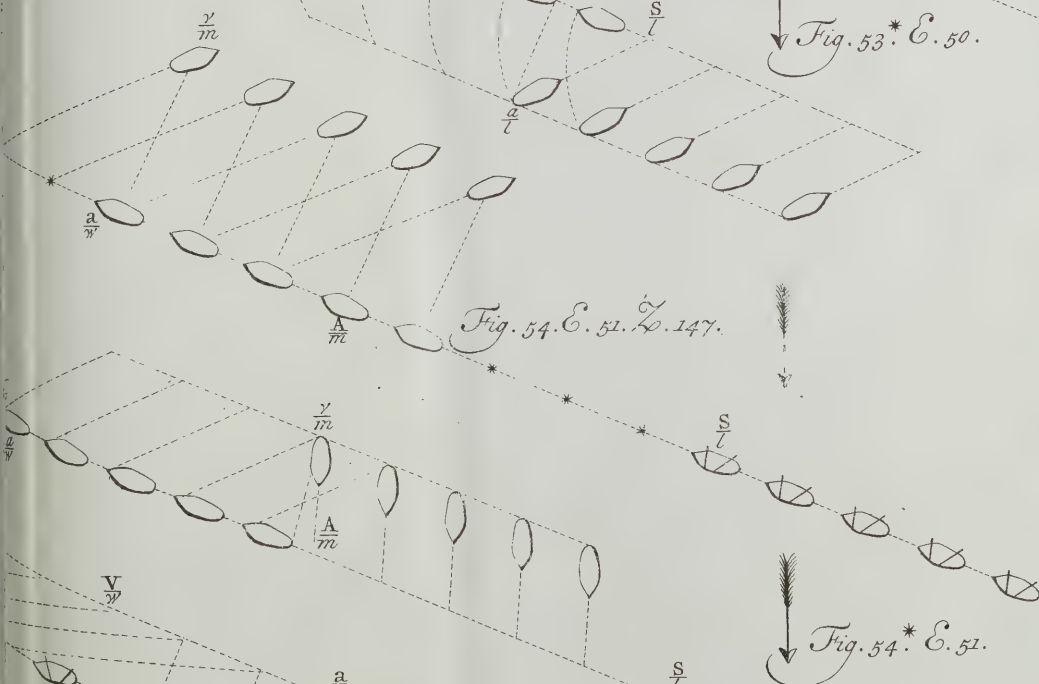 γ/m
S/l
Fig. 53.* E. 50.
a/l
a/w
A/m
Fig. 54. E. 51. Ż. 147.
S/l
γ/m
a/w
A/m
V/w
Fig. 54.* E. 51.
a
S/l